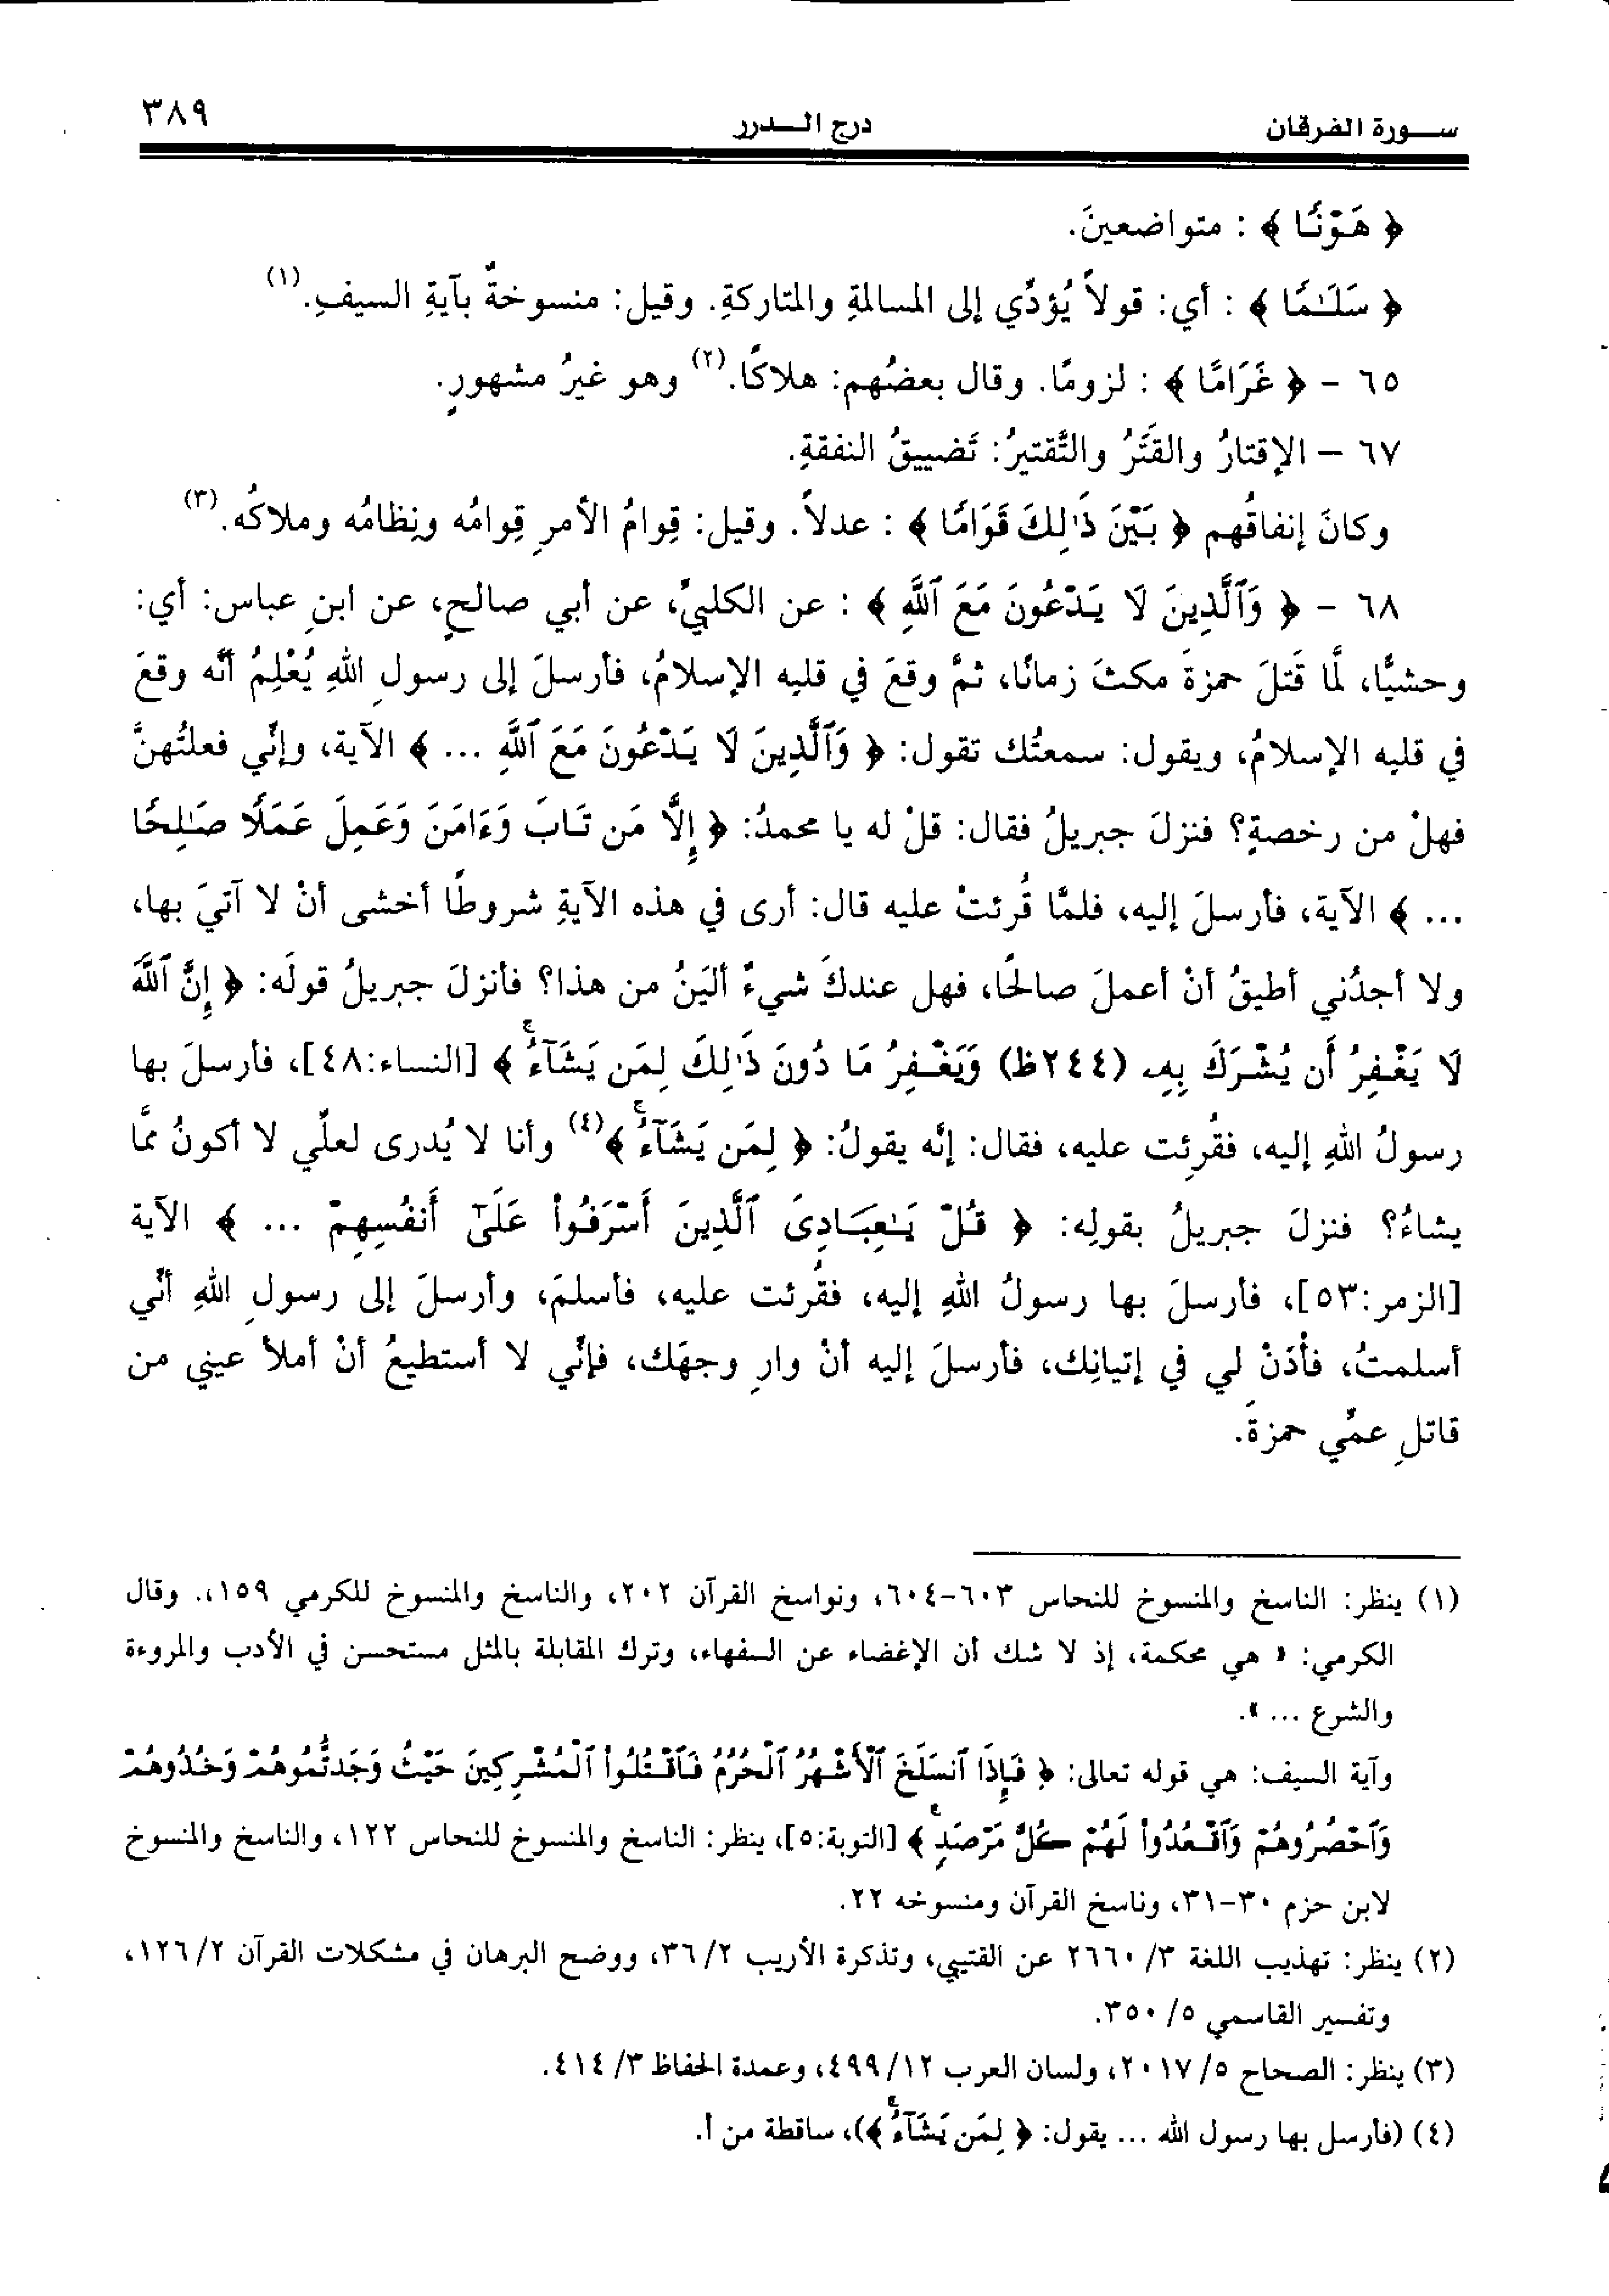 سورة الفرقان درج الدرر ٣٨٩
﴿ هَوْنًا ﴾ : متواضعينَ.
﴿ سَلَـٰمًا ﴾ : أي: قولاً يُؤدِّي إلى المسالمةِ والمتاركةِ. وقيل: منسوخةٌ بآيةِ السيفِ.(١)
٦٥ - ﴿ غَرَامًا ﴾ : لزومًا. وقال بعضُهم: هلاكًا.(٢) وهو غيرُ مشهورٍ.
٦٧ - الإقتارُ والقَتَرُ والتَّقتيرُ: تَضييقُ النفقةِ.
وكانَ إنفاقُهم ﴿ بَيْنَ ذَٰلِكَ قَوَامًا ﴾ : عدلاً. وقيل: قِوامُ الأمرِ قِوامُه ونِظامُه وملاكُه.(٣)
٦٨ - ﴿ وَٱلَّذِينَ لَا يَدْعُونَ مَعَ ٱللَّهِ ﴾ : عن الكلبيِّ، عن أبي صالحٍ، عن ابنِ عباس: أي:
وحشيًّا، لمَّا قَتلَ حمزةَ مكثَ زمانًا، ثمَّ وقعَ في قلبه الإسلامُ، فأرسلَ إلى رسولِ اللهِ يُعْلِمُ أنَّه وقعَ
في قلبه الإسلامُ، ويقول: سمعتُك تقول: ﴿ وَٱلَّذِينَ لَا يَدْعُونَ مَعَ ٱللَّهِ ... ﴾ الآية، وإنِّي فعلتُهنَّ
فهلْ من رخصةٍ؟ فنزلَ جبريلُ فقال: قلْ له يا محمدُ: ﴿ إِلَّا مَن تَابَ وَءَامَنَ وَعَمِلَ عَمَلًا صَـٰلِحًا
... ﴾ الآية، فأرسلَ إليه، فلمَّا قُرئتْ عليه قال: أرى في هذه الآيةِ شروطًا أخشى أنْ لا آتيَ بها،
ولا أجدُني أطيقُ أنْ أعملَ صالحًا، فهل عندكَ شيءٌ أليَنُ من هذا؟ فأنزلَ جبريلُ قولَه: ﴿ إِنَّ ٱللَّهَ
لَا يَغْفِرُ أَن يُشْرَكَ بِهِۦ (٢٤٤ظ) وَيَغْفِرُ مَا دُونَ ذَٰلِكَ لِمَن يَشَآءُ ۚ ﴾ [النساء:٤٨]، فأرسلَ بها
رسولُ اللهِ إليه، فقُرِئت عليه، فقال: إنَّه يقولُ: ﴿ لِمَن يَشَآءُ ۚ ﴾(٤) وأنا لا يُدرى لعلّي لا أكونُ ممَّا
يشاءُ؟ فنزلَ جبريلُ بقولِه: ﴿ قُلْ يَـٰعِبَادِىَ ٱلَّذِينَ أَسْرَفُوا۟ عَلَىٰٓ أَنفُسِهِمْ ... ﴾ الآية
[الزمر:٥٣]، فأرسلَ بها رسولُ اللهِ إليه، فقُرئت عليه، فأسلمَ، وأرسلَ إلى رسولِ اللهِ أنِّي
أسلمتُ، فأْذَنْ لي في إتيانِك، فأرسلَ إليه أنْ وارِ وجهَك، فإنِّي لا أستطيعُ أنْ أملأ عيني من
قاتلِ عمِّي حمزةَ.
(١) ينظر: الناسخ والمنسوخ للنحاس ٦٠٣-٦٠٤، ونواسخ القرآن ٢٠٢، والناسخ والمنسوخ للكرمي ١٥٩،. وقال
الكرمي: « هي محكمة، إذ لا شك أن الإغضاء عن السفهاء، وترك المقابلة بالمثل مستحسن في الأدب والمروءة
والشرع ... ».
وآية السيف: هي قوله تعالى: ﴿ فَإِذَا ٱنسَلَخَ ٱلْأَشْهُرُ ٱلْحُرُمُ فَٱقْتُلُوا۟ ٱلْمُشْرِكِينَ حَيْثُ وَجَدتُّمُوهُمْ وَخُذُوهُمْ
وَٱحْصُرُوهُمْ وَٱقْعُدُوا۟ لَهُمْ كُلَّ مَرْصَدٍ ۚ ﴾ [التوبة:٥]، ينظر: الناسخ والمنسوخ للنحاس ١٢٢، والناسخ والمنسوخ
لابن حزم ٣٠-٣١، وناسخ القرآن ومنسوخه ٢٢.
(٢) ينظر: تهذيب اللغة ٣/ ٢٦٦٠ عن القتيبي، وتذكرة الأريب ٢/ ٣٦، ووضح البرهان في مشكلات القرآن ٢/ ١٢٦،
وتفسير القاسمي ٥/ ٣٥٠.
(٣) ينظر: الصحاح ٥/ ٢٠١٧، ولسان العرب ١٢/ ٤٩٩، وعمدة الحفاظ ٣/ ٤١٤.
(٤) (فأرسل بها رسول الله ... يقول: ﴿ لِمَن يَشَآءُ ۚ ﴾)، ساقطة من أ.